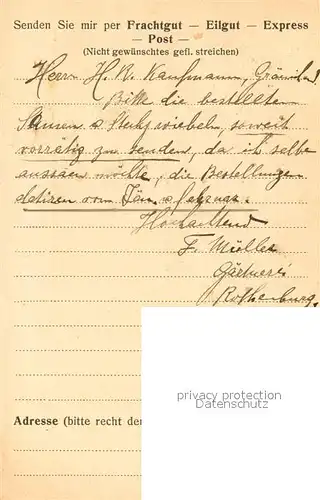 Senden Sie mir per Frachtgut — Eilgut — Express
— Post —
(Nicht gewünschtes gefl. streichen)
Herrn H. R. Kaufmann,
Bitte die bestellten
Samen & Steckzwiebeln, soweit
vorrätig zu senden, da ich selbe
aussäen möchte, die Bestellungen
datiren vom Jän. & Februar.
Hochachtend
F. Müller
Gärtnerei
Rothenburg.
privacy protection
Datenschutz
Adresse (bitte recht de